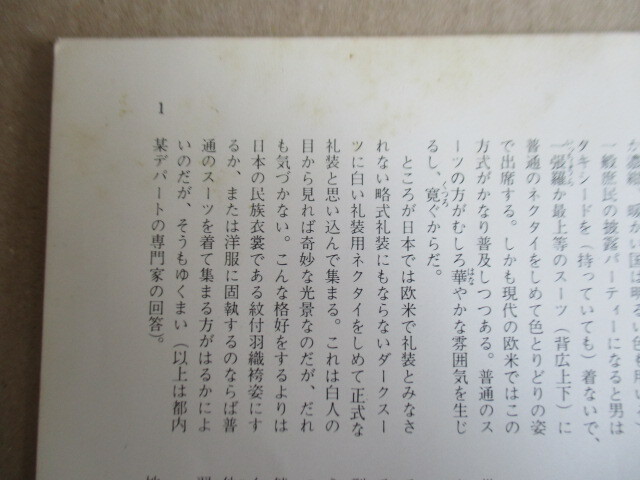 一般庶民の披露パーティーになると男は
タキシードを（持っていても）着ないで、
一張羅か最上等のスーツ（背広上下）に
普通のネクタイをしめて色とりどりの姿
で出席する。しかも現代の欧米ではこの
方式がかなり普及しつつある。普通のス
ーツの方がむしろ華やかな雰囲気を生じ
るし、寛ぐからだ。
ところが日本では欧米で礼装とみなさ
れない略式礼装にもならないダークスー
ツに白い礼装用ネクタイをしめて正式な
礼装と思い込んで集まる。これは白人の
目から見れば奇妙な光景なのだが、だれ
も気づかない。こんな格好をするよりは
日本の民族衣裳である紋付羽織袴姿にす
るか、または洋服に固執するのならば普
通のスーツを着て集まる方がはるかによ
いのだが、そうもゆくまい（以上は都内
某デパートの専門家の回答）。
1